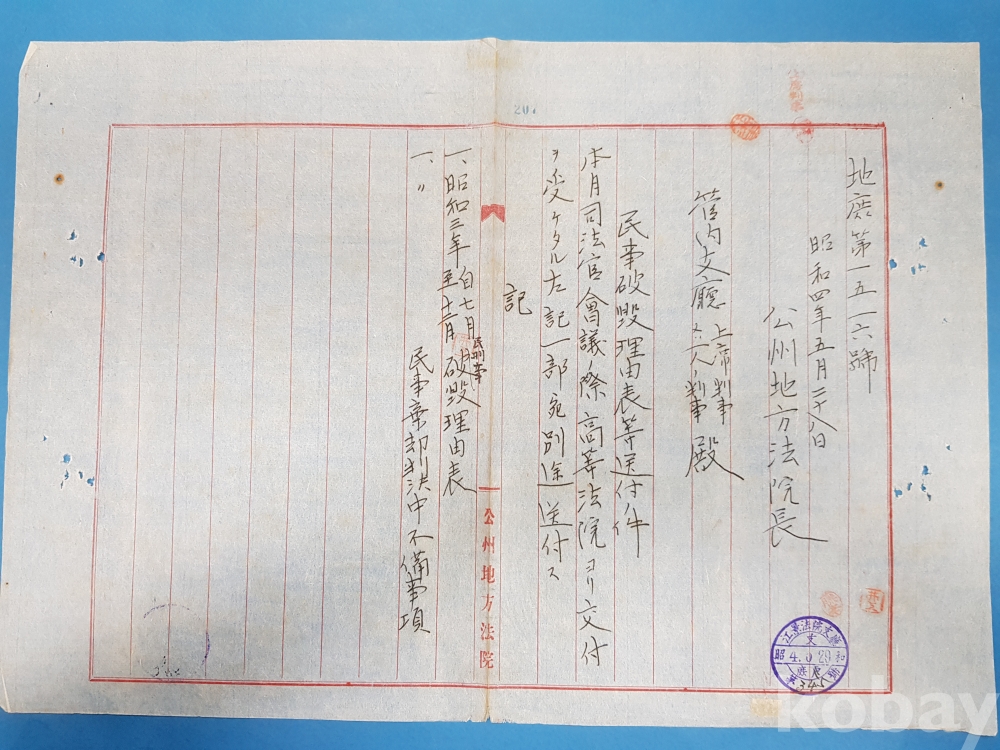 地庶第一五一六號
昭和四年五月二十八日
公州地方法院長
管内支廳
上席判事
一人ノ判事
殿
民事破毀理由表等送付ノ件
本月司法官會議ノ際高等法院ヨリ交付
ヲ受ケタル左記一部宛別途送付ス
記
一、昭和三年自七月至十二月民刑事破毀理由表
一、〃 民事棄却判決中不備事項
公州地方法院
207
江景法院支廳
昭和
4.5.29
kobay